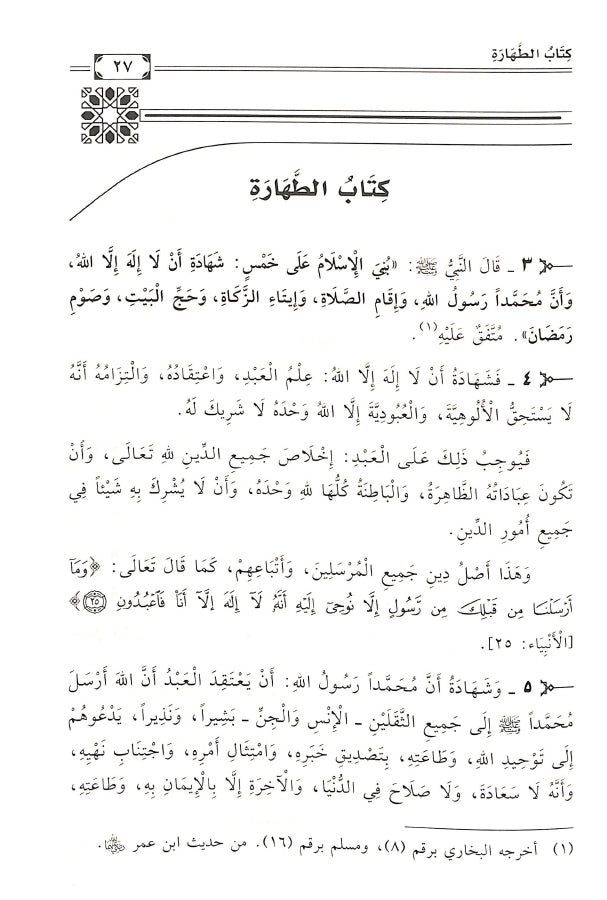 كِتَابُ الطَّهَارَةِ
٢٧
كِتَابُ الطَّهَارَةِ
٣ ـ قَالَ النَّبِيُّ ﷺ: «بُنِيَ الْإِسْلَامُ عَلَى خَمْسٍ: شَهَادَةِ أَنْ لَا إِلَهَ إِلَّا اللهُ،
وَأَنَّ مُحَمَّداً رَسُولُ اللهِ، وَإِقَامِ الصَّلَاةِ، وَإِيتَاءِ الزَّكَاةِ، وَحَجِّ الْبَيْتِ، وَصَوْمِ
رَمَضَانَ». مُتَّفَقٌ عَلَيْهِ(١).
٤ ـ فَشَهَادَةُ أَنْ لَا إِلَهَ إِلَّا اللهُ: عِلْمُ الْعَبْدِ، وَاعْتِقَادُهُ، وَالْتِزَامُهُ أَنَّهُ
لَا يَسْتَحِقُّ الْأُلُوهِيَّةَ، وَالْعُبُودِيَّةَ إِلَّا اللهُ وَحْدَهُ لَا شَرِيكَ لَهُ.
فَيُوجِبُ ذَلِكَ عَلَى الْعَبْدِ: إِخْلَاصَ جَمِيعِ الدِّينِ لِلهِ تَعَالَى، وَأَنْ
تَكُونَ عِبَادَاتُهُ الظَّاهِرَةُ، وَالْبَاطِنَةُ كُلُّهَا لِلهِ وَحْدَهُ، وَأَنْ لَا يُشْرِكَ بِهِ شَيْئاً فِي
جَمِيعِ أُمُورِ الدِّينِ.
وَهَذَا أَصْلُ دِينِ جَمِيعِ الْمُرْسَلِينَ، وَأَتْبَاعِهِمْ، كَمَا قَالَ تَعَالَى: ﴿وَمَآ
أَرْسَلْنَا مِن قَبْلِكَ مِن رَّسُولٍ إِلَّا نُوحِيٓ إِلَيْهِ أَنَّهُۥ لَآ إِلَهَ إِلَّآ أَنَا۠ فَٱعْبُدُونِ ٢٥﴾
[الْأَنْبِيَاء: ٢٥].
٥ ـ وَشَهَادَةُ أَنَّ مُحَمَّداً رَسُولُ اللهِ: أَنْ يَعْتَقِدَ الْعَبْدُ أَنَّ اللهَ أَرْسَلَ
مُحَمَّداً ﷺ إِلَى جَمِيعِ الثَّقَلَيْنِ ـ الْإِنْسِ وَالْجِنِّ ـ بَشِيراً، وَنَذِيراً، يَدْعُوهُمْ
إِلَى تَوْحِيدِ اللهِ، وَطَاعَتِهِ، بِتَصْدِيقِ خَبَرِهِ، وَامْتِثَالِ أَمْرِهِ، وَاجْتِنَابِ نَهْيِهِ،
وَأَنَّهُ لَا سَعَادَةَ، وَلَا صَلَاحَ فِي الدُّنْيَا، وَالْآخِرَةِ إِلَّا بِالْإِيمَانِ بِهِ، وَطَاعَتِهِ،
(١) أخرجه البخاري برقم (٨)، ومسلم برقم (١٦). من حديث ابن عمر رضي الله عنهما.